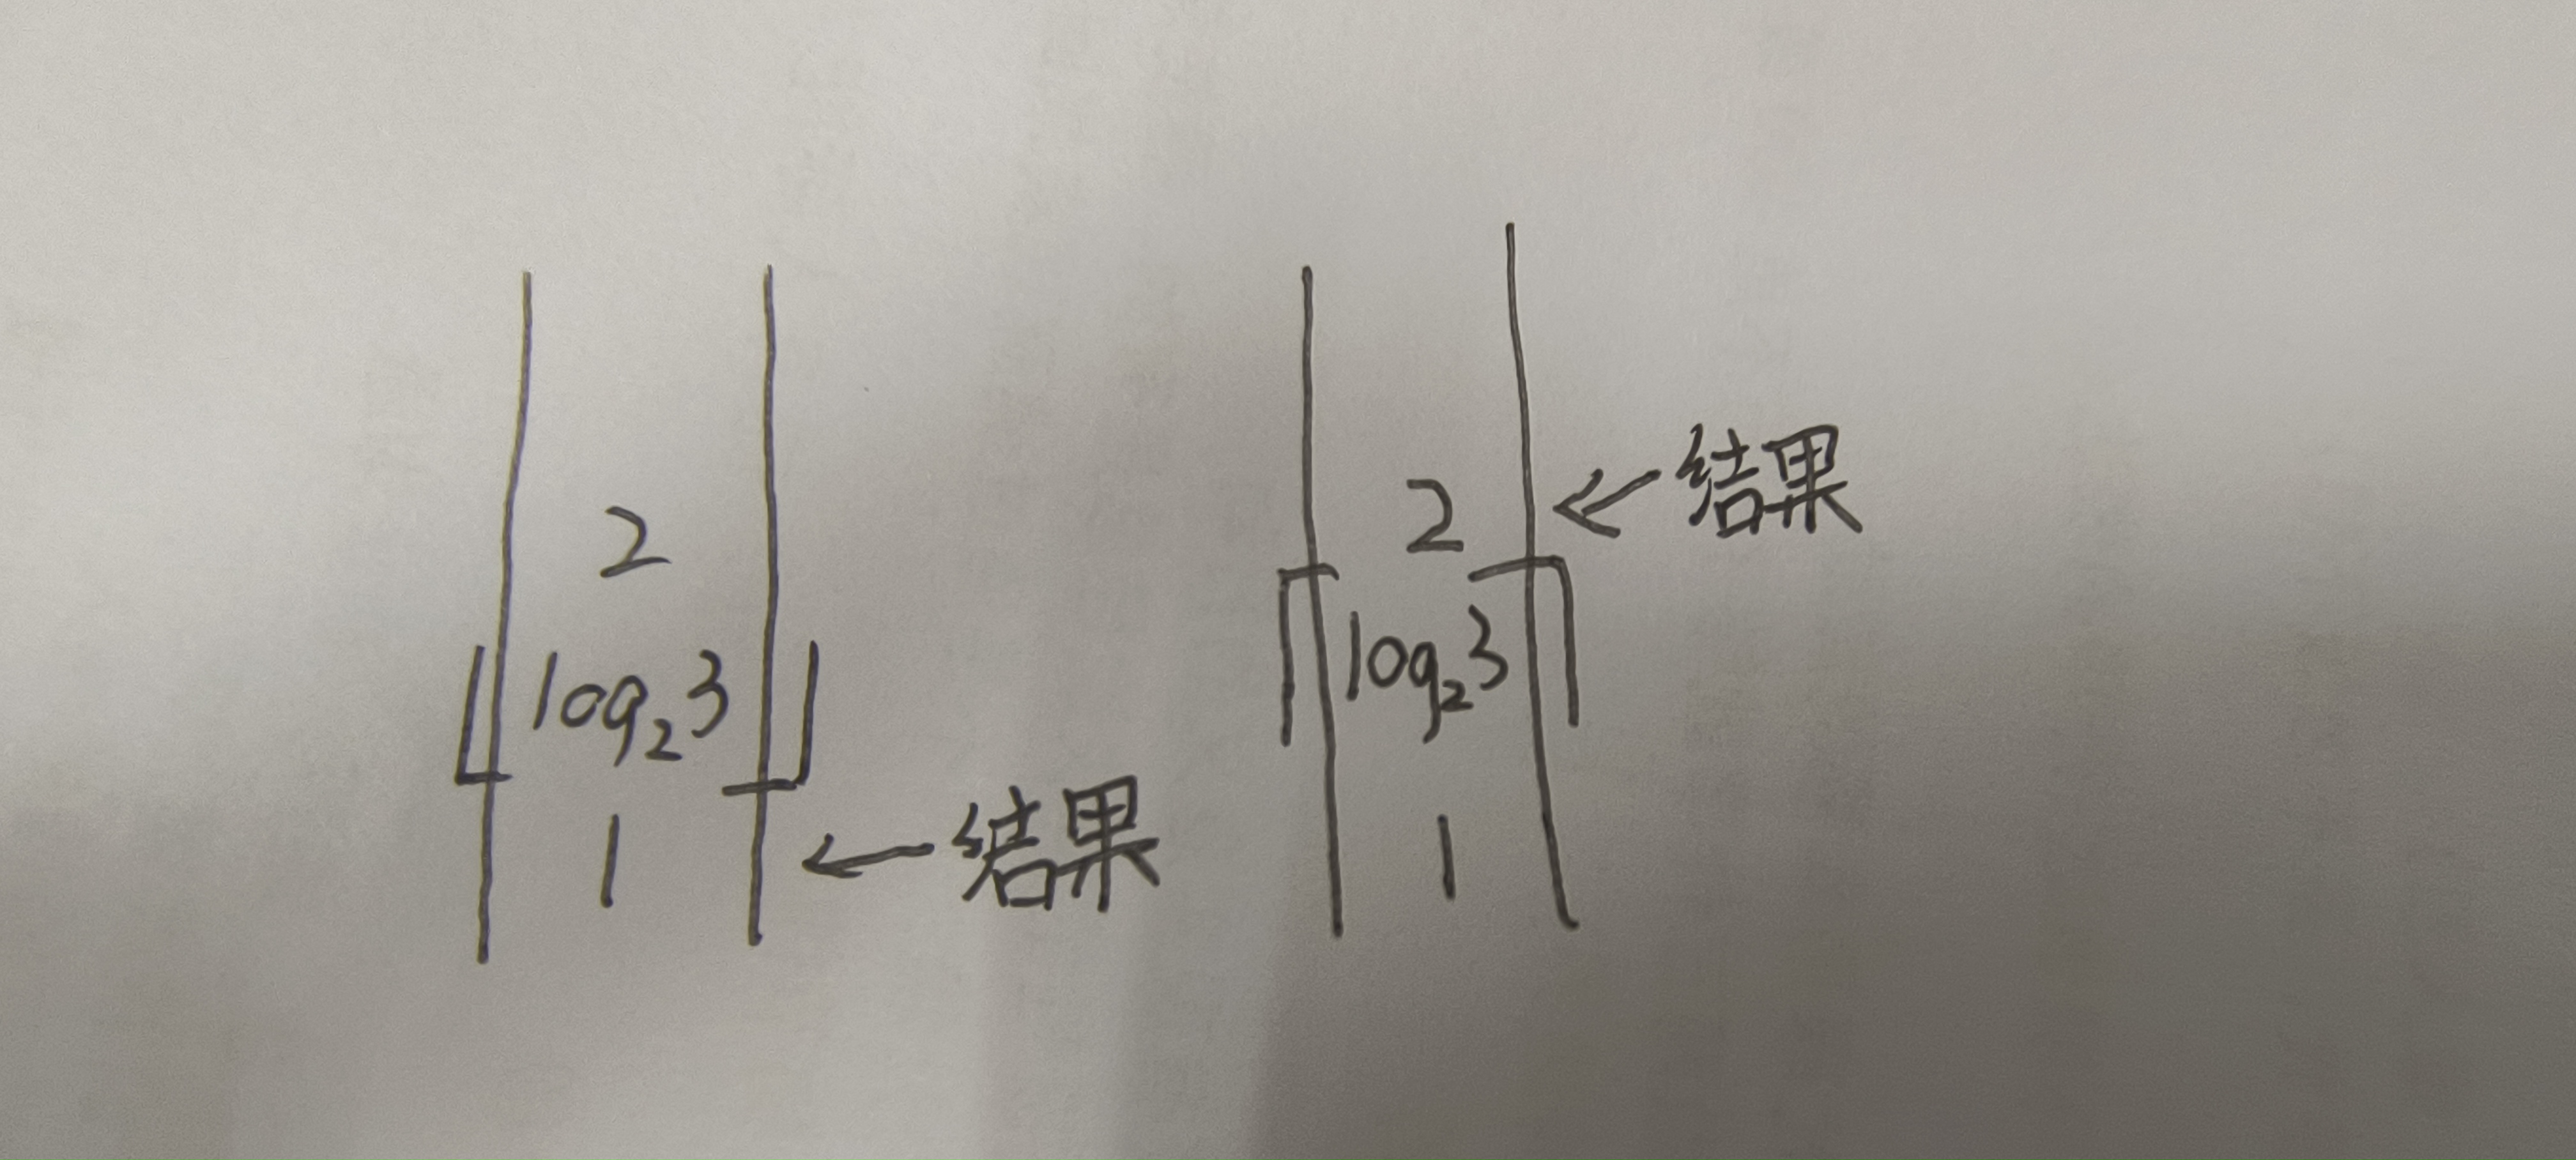 2
⌊log₂3⌋
1 ← 结果
2 ← 结果
⌈log₂3⌉
1